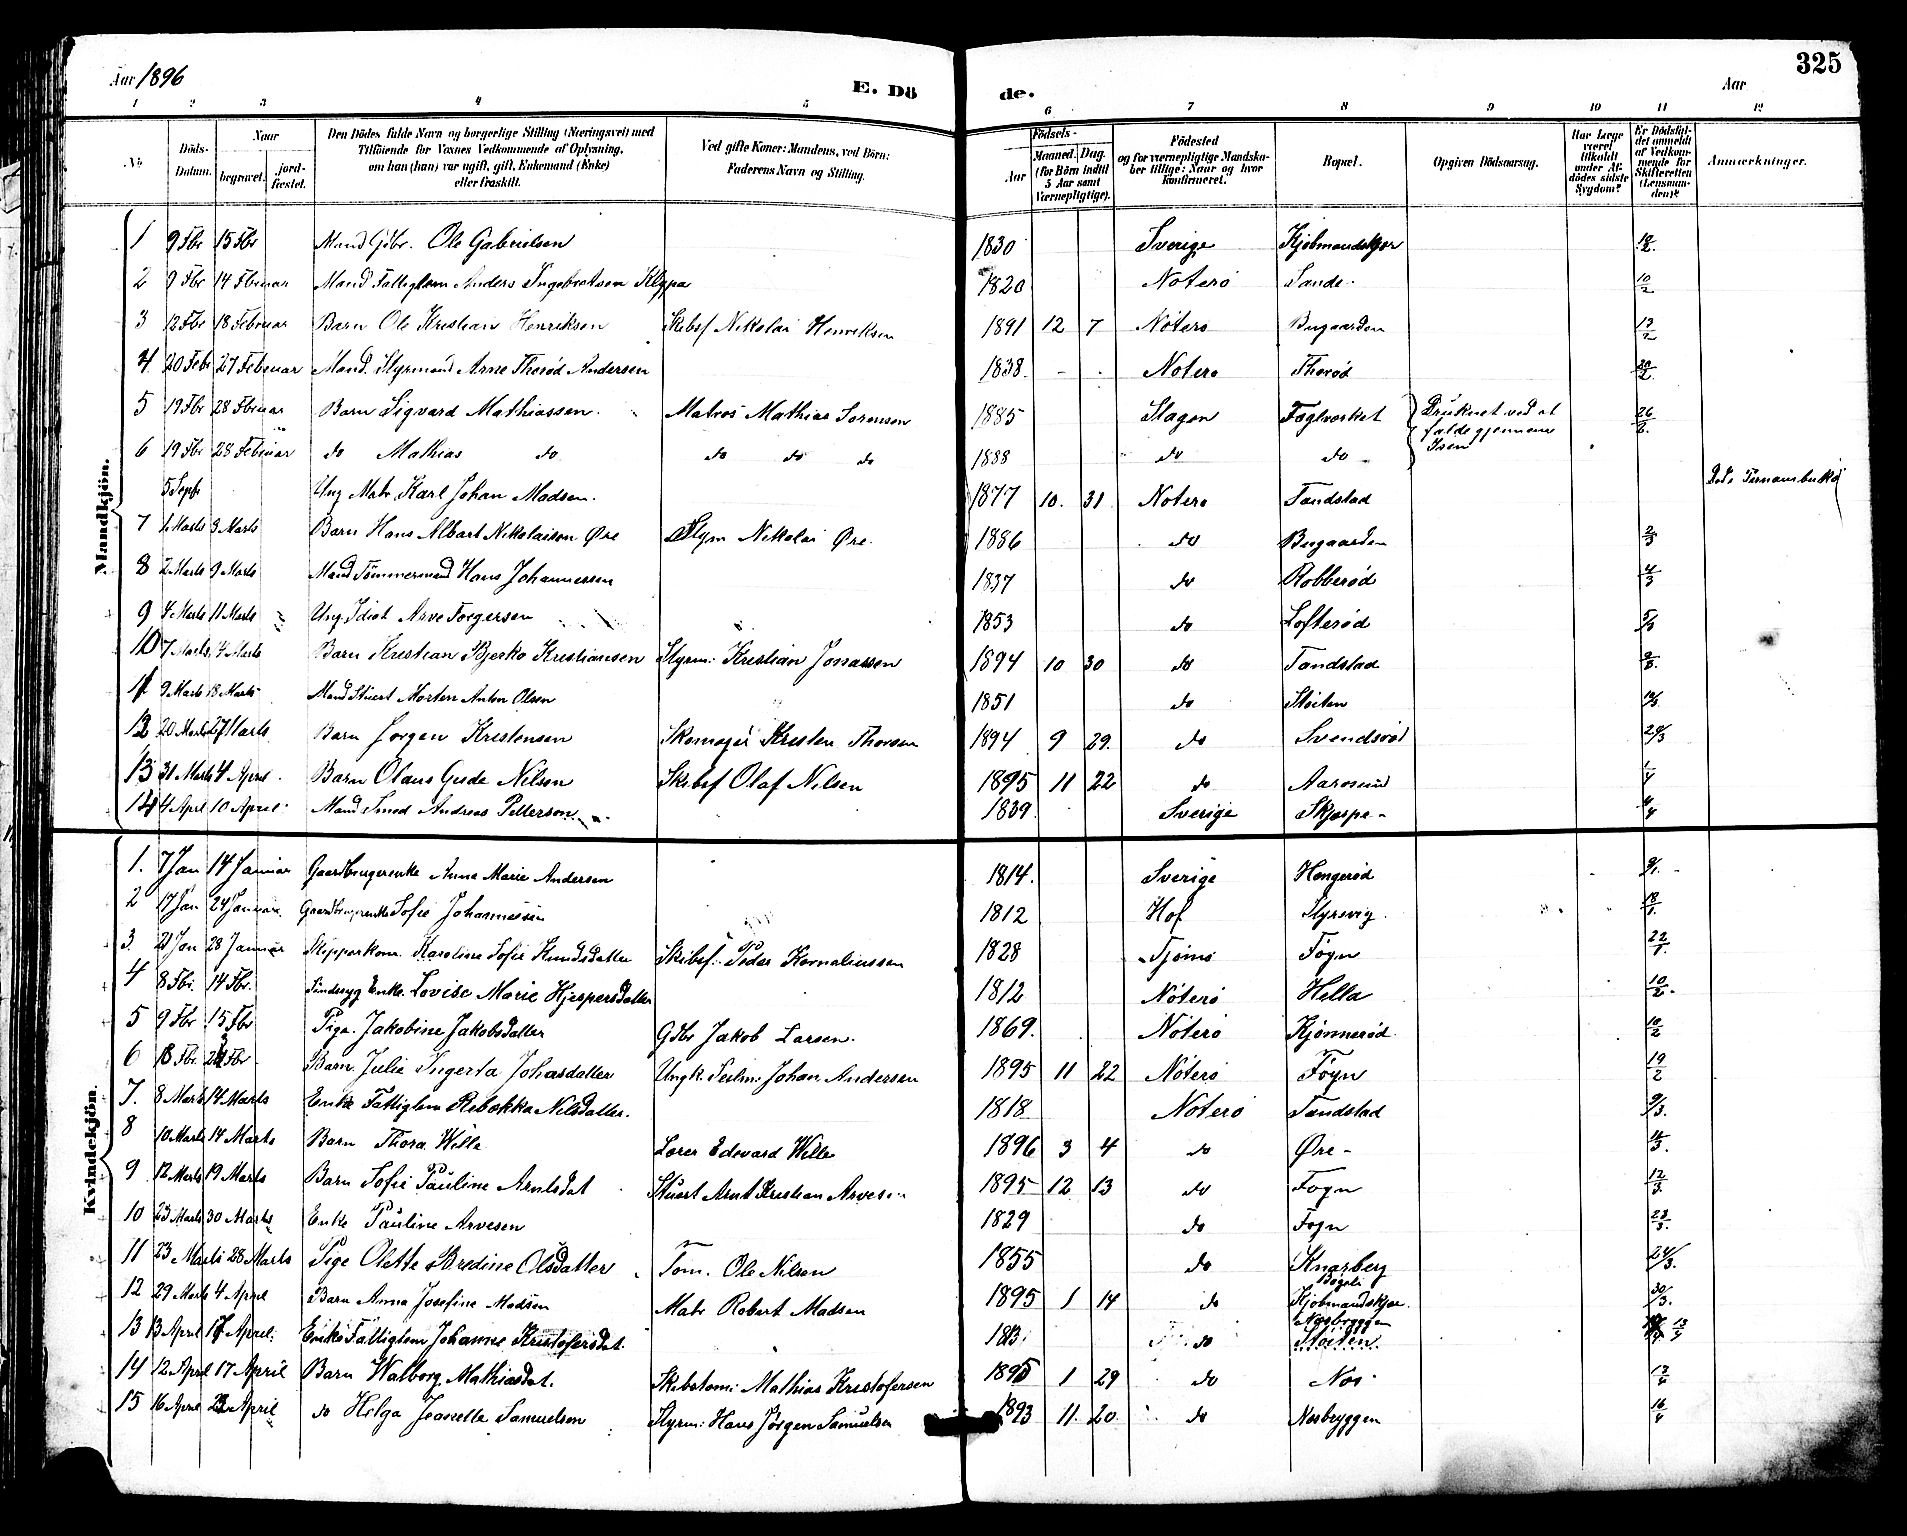 325
Aar 1896
E. Dö de.
Aar
1 2 3 4 5 6 7 8 9 10 11 12
No
Döds-Datum.
Naar begravet. jordfæstet.
Den Dödes fulde Navn og borgerlige Stilling (Næringsvei) med Tilföiende for Voxnes Vedkommende af Oplysning, om han (hun) var ugift, gift, Enkemand (Enke) eller fraskilt.
Ved gifte Koner: Mandens, ved Börn: Faderens Navn og Stilling.
Födsels- Aar Maaned. Dag. (for Börn indtil 5 Aar samt Værnepligtige).
Födested og for værnepligtige Mandskaber tillige: Naar og hvor konfirmeret.
Bopæl.
Opgiven Dödsaarsag.
Har Læge været tilkaldt under Afdödes sidste Sygdom?
Er Dödsfaldet anmeldt af Vedkommende for Skifteretten (Lensmanden)?
Anmærkninger.
Mandkjön.
1 9 Fbr 15 Fbr Mand Gdbr. Ole Gabrielsen 1830 Sverige Kjøbmandskjær
2 9 Fbr 14 Februar Mand Fattiglem Anders Ingebretsen Klyppa 1820 Nøterø Sande 10/2
3 12 Fbr 18 Februar Barn Ole Kristian Henriksen Skibsf Nikolai Henriksen 1891 12 7 Nøterø Bugaarden 13/2
4 20 Febr 27 Februar Mand. Styrmand Arne Thorød Andersen 1838 - Nøterø Thorød 20/2
5 19 Fbr 28 Februar Barn Sigvard Mathiassen Matros Mathias Sørensen 1885 Slagen Teglverket Druknet ved at falde gjennem Isen 26/2
6 19 Fbr 28 Februar do Mathias do do do do 1888 do do
5 Sept Ung Matr. Karl Johan Madsen. 1877 10. 31 Nøterø Tandstad Død i Pernambuko
7 1 Marts 9 Marts Barn Hans Albart Nikolaison Øre Styrm Nikolai Øre 1886 do Bugaarden 2/3
8 2 Marts 9 Marts Mand Tømmermand Hans Johannessen 1837 do Robberød 4/3
9 4 Marts 11 Marts Ung. Idiot Arve Torgersen 1853 do Lofterød 5/3
10 7 Marts 14 Marts Barn Kristian Bjerkø Kristiansen Styrm: Kristian Jonassen 1894 10 30 do Tandstad 9/3
11 9 Marts 18 Marts Mand Stuert Morten Anton Olsen 1851 do Støiten
12 20 Marts 27 Marts Barn Jørgen Kristensen Skomager Kristen Thorsen 1894 9 29. do Svendsrød 24/3
13 31 Marts 4 April Barn Olaus Gude Nilsen Skibsf Olaf Nilsen 1895 11 22 do Aarøsund 1/4
14 4 April 10 April Mand Smed Andreas Pettersen 1839 Sverige Skjærpe 4/4
Kvindekjön.
1. 7 Jan 14 Januar Gaardbrugerenke Anna Marie Andersen 1814. Sverige Hengerød 9/1
2 17 Jan 24 Januar Gaardbrugerenke Sofie Johannessen 1812 Hof Styrsvig 18/1
3. 21 Jan 28 Januar Skipperkone. Karoline Sofie Knudsdatter Skibsf. Peder Kornaliussen 1828 Tjømø Føyn 22/1
4 8 Fbr. 14 Fbr. Sindssyg Enke. Lovise Marie Hjespersdatter 1812 Nøterø Hella 10/2
5 9 Fbr 15 Fbr Pige. Jakobine Jakobsdatter Gdbr Jakob Larsen. 1869. Nøterø Kjønnerød 10/2
6 18 Fbr 24 Fbr Barn. Julie Ingerta Johansdatter Ungk. Sedm. Johan Andersen 1895 11 22 Nøterø Føyn 19/2
7. 8 Marts 14 Marts Enke Fattiglem Rebekka Nilsdatter. 1818 Nøterø Tandstad 9/3
8 10 Marts 14 Marts Barn Thora Wille Lærer Edevard Wille 1896 3 4 do Øre 11/3
9 12 Marts 19 Marts Barn Sofie Pauline Arntsdat Stuert Arnt Kristian Arvesen 1895 12 13 do Føyn 12/3
10 23 Marts 30 Marts Enke Pauline Arvesen 1829 do Føyn 23/3
11 23 Marts 28 Marts Pige Olette Bredine Olsdatter Tøm. Ole Nilsen 1855 do Knarberg 24/3
12 29 Marts 4 April Barn Anna Josefine Madsen Matr Robert Madsen 1895 1 14 do Kjøbmandskjær 30/3
13 13 April 17 April. Enke Fattiglem Johanne Kristofersdat. 1813. do Nesbryggen Støiten. 13/4
14 12 April 17 April Barn Walborg Mathiasdat. Skibstøm: Mathias Kristofersen 1895 1 29 do Nes 13/4
15 16 April 23 April do Helga Jeanette Samuelsen Styrm: Hans Jørgen Samuelsen 1893 11. 20. do Nesbryggen 16/4